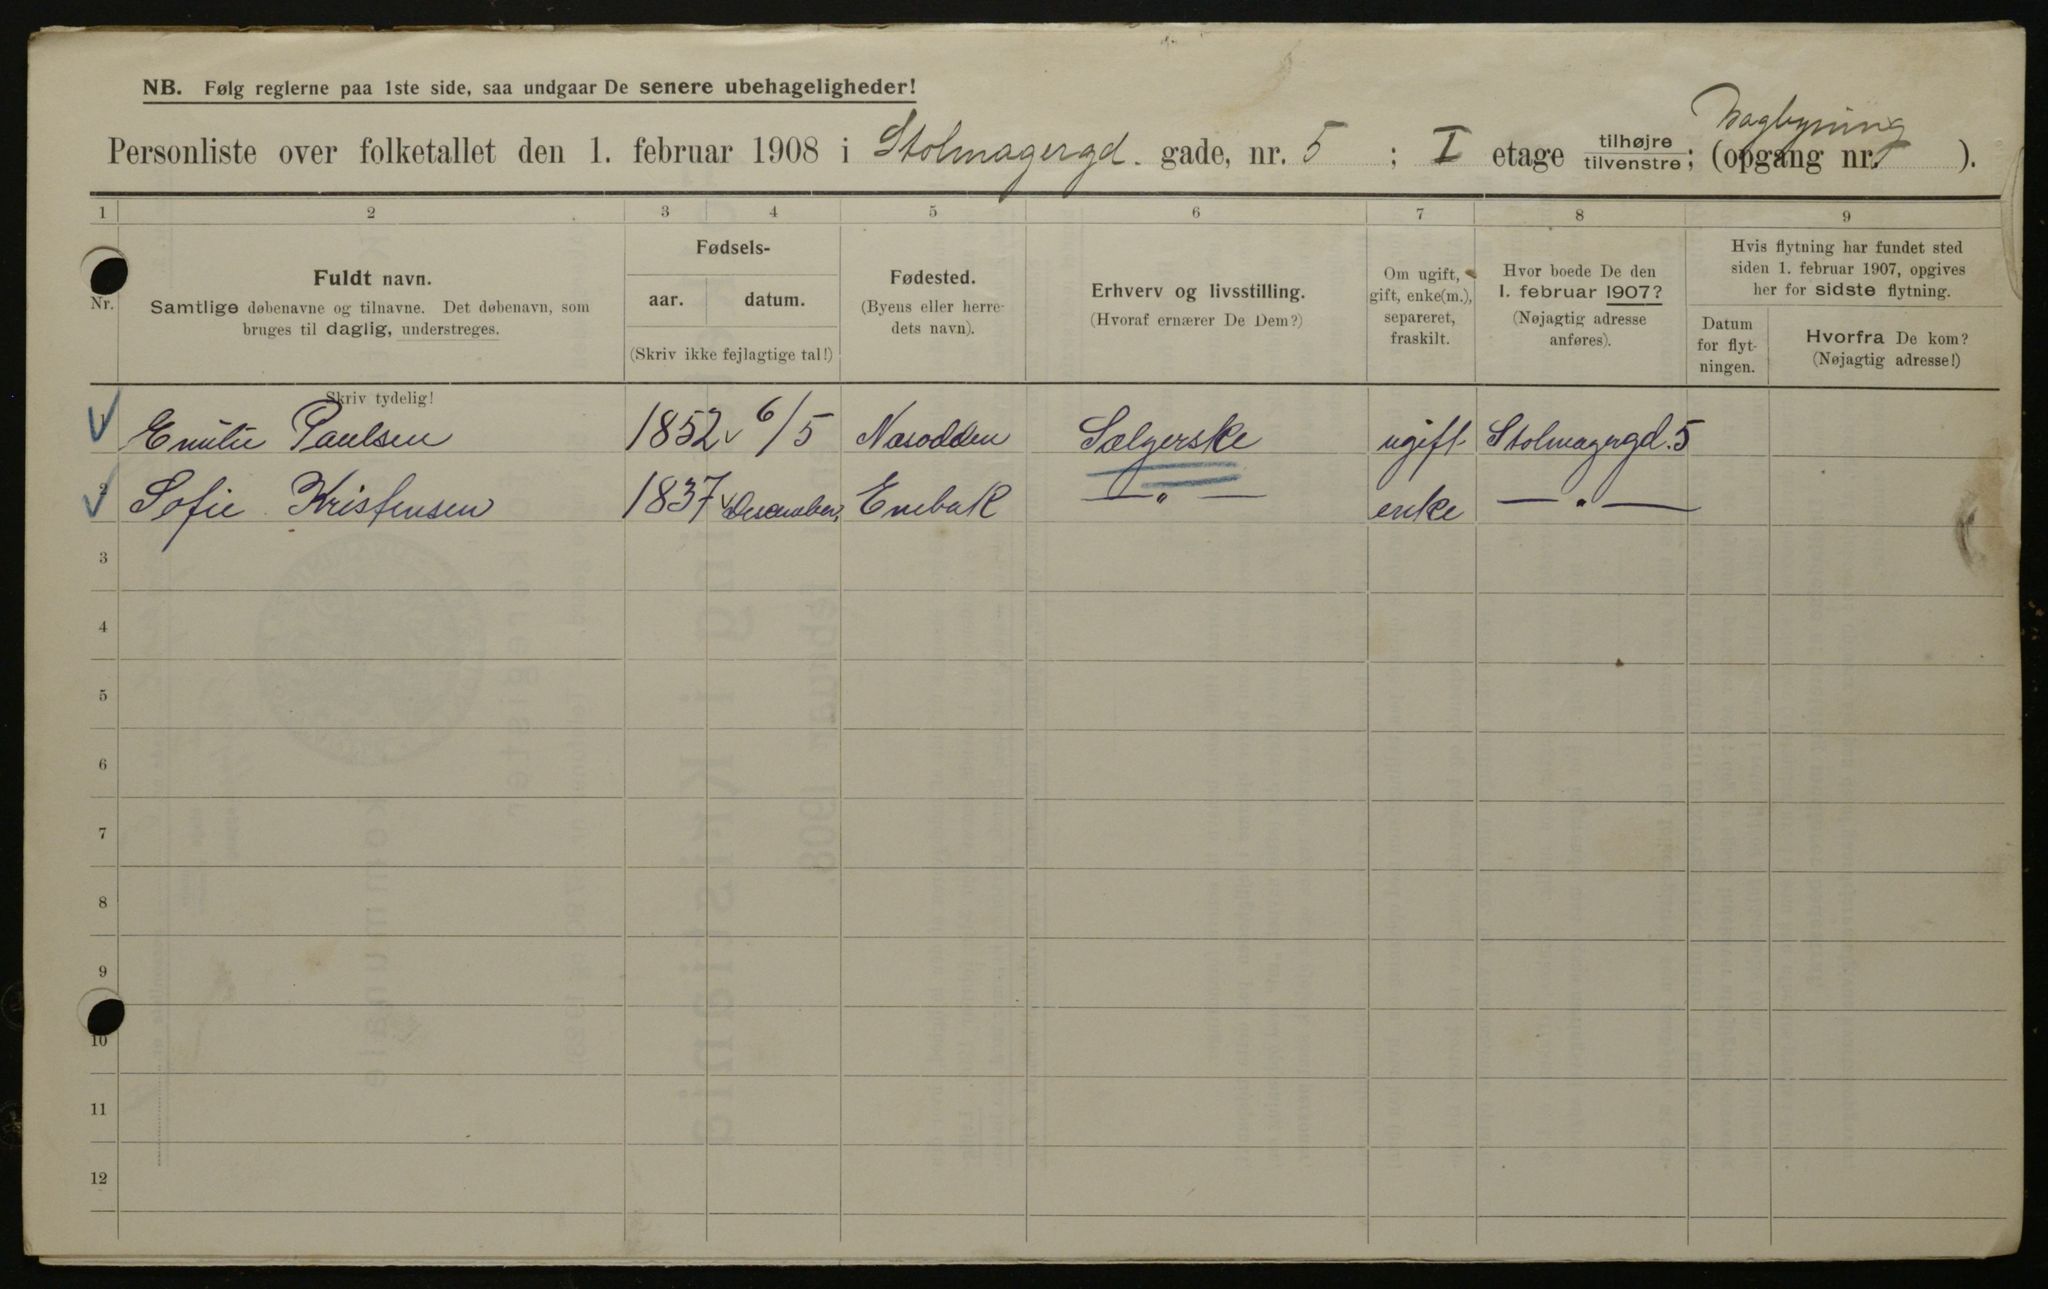 NB. Følg reglerne paa 1ste side, saa undgaar De senere ubehageligheder!
Bagbyning
Personliste over folketallet den 1. februar 1908 i Stolmagergd. gade, nr. 5 ; I etage tilhøjre/tilvenstre; (opgang nr. ).
1 2 3 4 5 6 7 8 9
Nr.
Fuldt navn.
Samtlige døbenavne og tilnavne. Det døbenavn, som
bruges til daglig, understreges.
Skriv tydelig!
Fødsels-
aar. datum.
(Skriv ikke fejlagtige tal!)
Fødested.
(Byens eller herre-
dets navn).
Erhverv og livsstilling.
(Hvoraf ernærer De Dem?)
Om ugift,
gift, enke(m.),
separeret,
fraskilt.
Hvor boede De den
1. februar 1907?
(Nøjagtig adresse
anføres).
Hvis flytning har fundet sted
siden 1. februar 1907, opgives
her for sidste flytning.
Datum
for flyt-
ningen.
Hvorfra De kom?
(Nøjagtig adresse!)
1 Emilie Paulsen 1852 6/5 Næsodden Sælgerske ugift Stolmagergd. 5
2 Sofie Kristensen 1837 Desember, Enebak — " — enke — " —
3
4
5
6
7
8
9
10
11
12